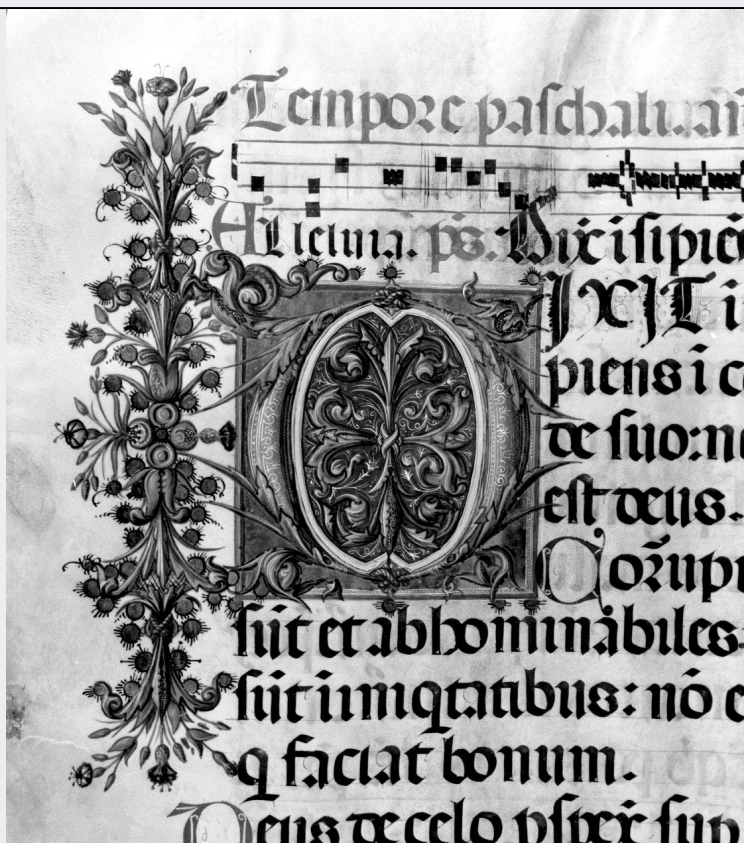 Tempore paschali. añ
Alleluia. ps. Dixit isipiẽ
DIXIT i
piens i co
de suo: n
est deus.
Corrupt
sũt et abhominabiles
sũt i iniqtatibus: nõ e
q faciat bonum.
Deus de celo pspex̃ sup